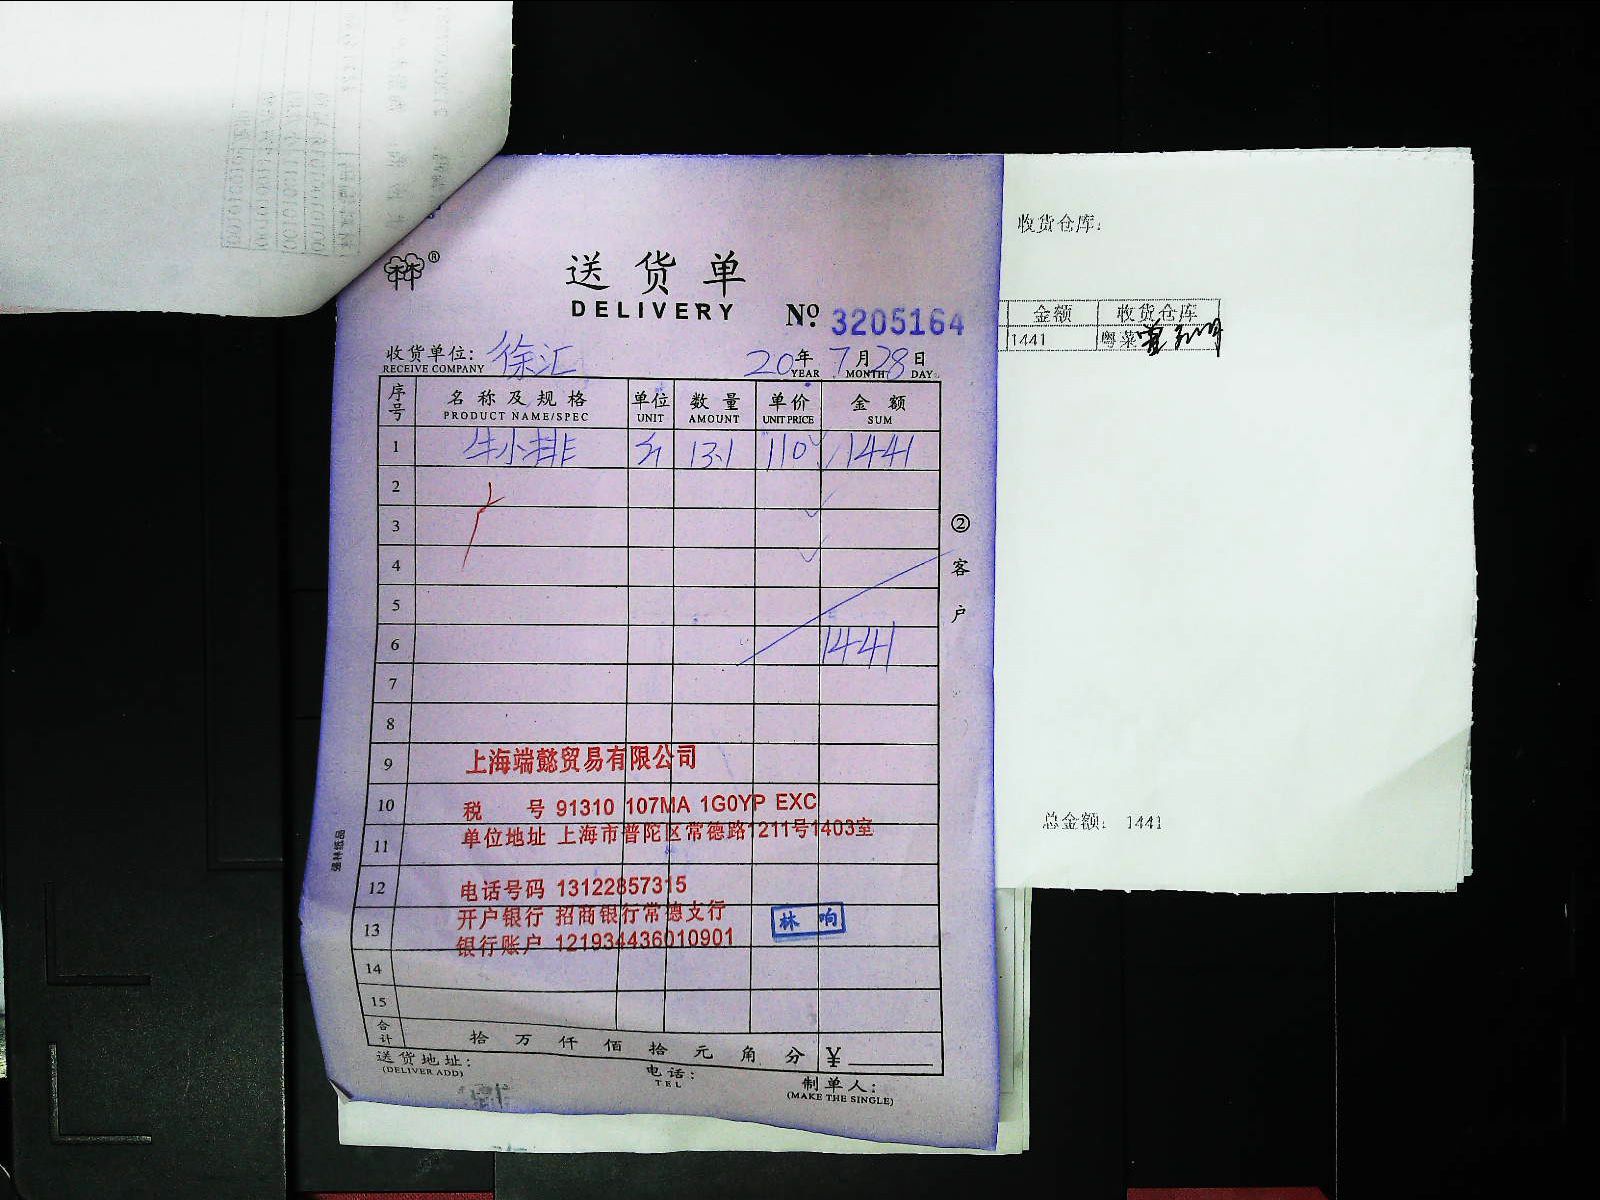 送货单
DELIVERY
№ 3205164
收货单位: 徐汇 20年 7月 28日
RECEIVE COMPANY YEAR MONTH DAY
序号 名称及规格 单位 数量 单价 金额
PRODUCT NAME/SPEC UNIT AMOUNT UNIT PRICE SUM
1 牛小排 斤 13.1 110 1441
2
3
4
5
6 1441
7
8
9 上海端懿贸易有限公司
10 税 号 91310 107MA 1G0YP EXC
11 单位地址 上海市普陀区常德路1211号1403室
12 电话号码 13122857315
开户银行 招商银行常德支行
13 林响
银行账户 121934436010901
14
15
合计 拾万仟佰拾元角分 ¥
送货地址: 电话: 制单人:
(DELIVER ADD) TEL (MAKE THE SINGLE)
②客户
强林纸品
收货仓库:
金额 收货仓库
1441 粤菜
总金额: 1441